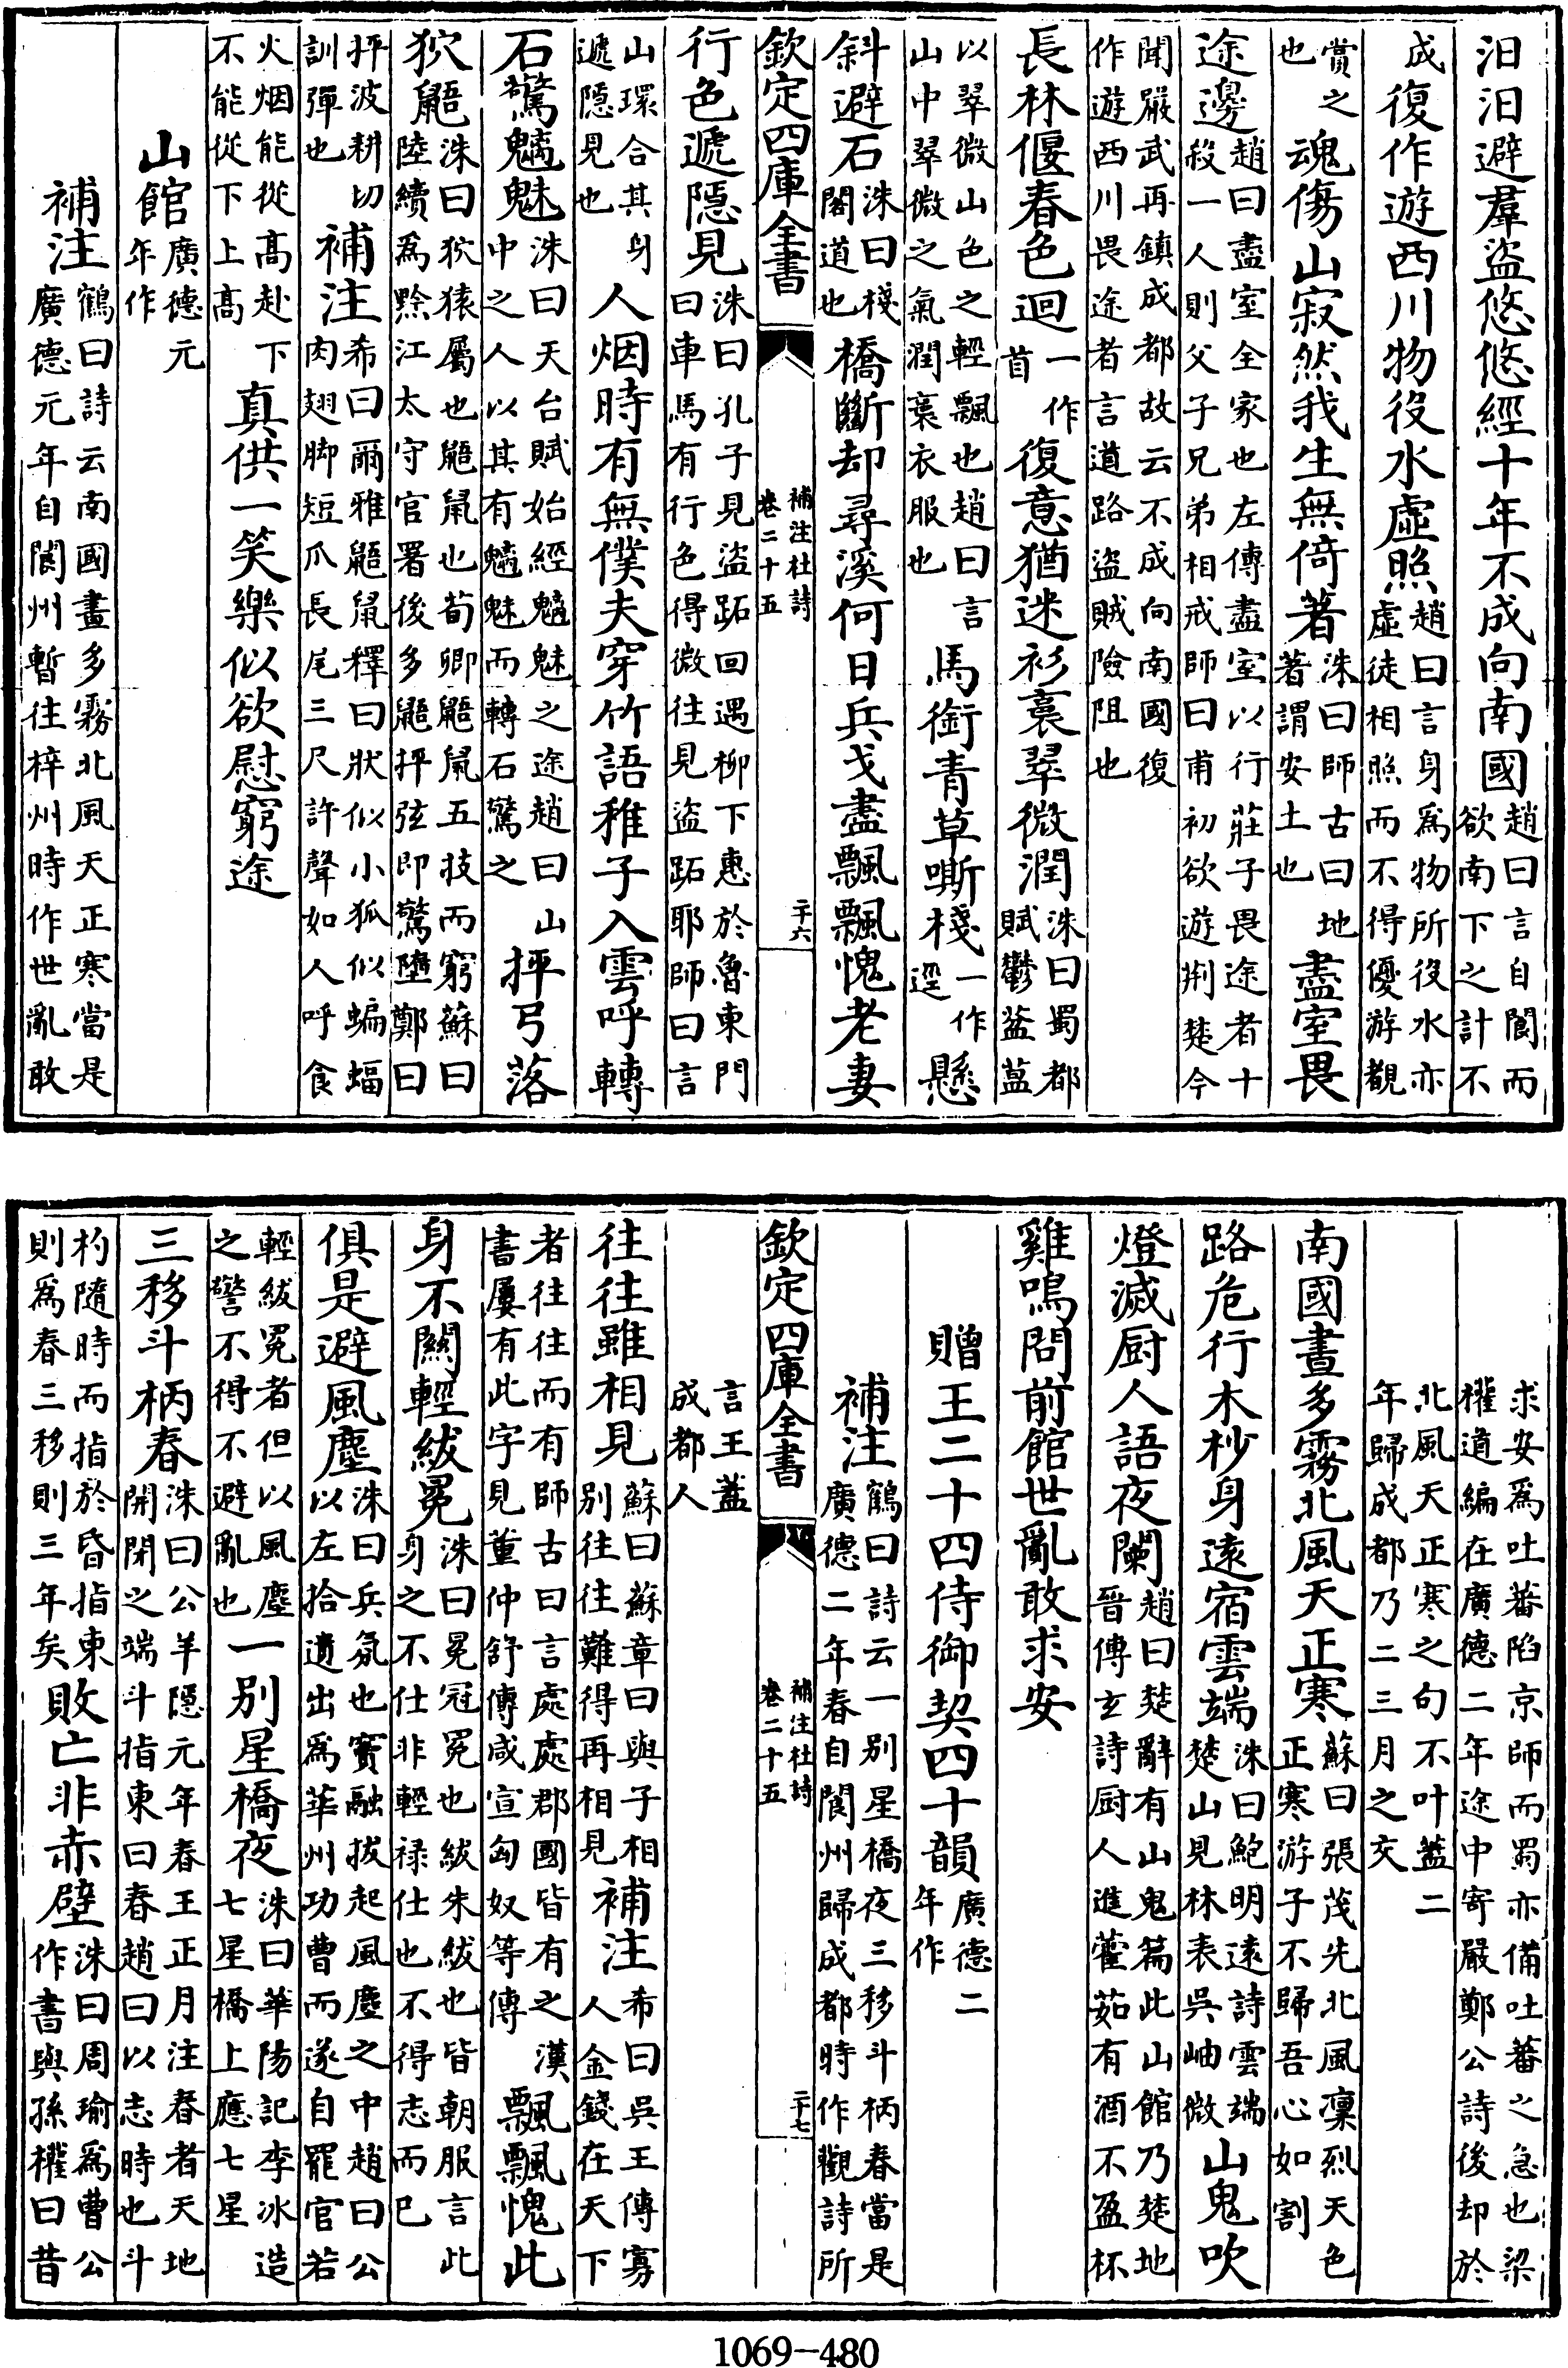 汩汩避羣盜悠悠經十年不成向南國趙曰言自閬而欲南下之計不
成復作遊西川物役水虛照趙曰言身為物所役水亦虛徒相照而不得優游觀
賞之也魂傷山寂然我生無倚著洙曰師古曰地著謂安土也盡室畏
途邊趙曰盡室全家也左傳盡室以行莊子畏途者十殺一人則父子兄弟相戒師曰甫初欲遊荆楚今
聞嚴武再鎮成都故云不成向南國復作遊西川畏途者言道路盜賊險阻也
長林偃春色迴一作首復意猶迷衫裛翠微潤洙曰蜀都賦鬱葐蒀
以翠微山色之輕飄也趙曰言山中翠微之氣潤裛衣服也馬銜青草嘶棧一作逕懸
斜避石洙曰棧閣道也橋斷却尋溪何日兵戈盡飄飄愧老妻
欽定四庫全書
補注杜詩
卷二十五
二十六
行色遞隱見洙曰孔子見盜跖回遇柳下惠於魯東門曰車馬有行色得微往見盜跖耶師曰言
山環合其身遞隱見也人烟時有無僕夫穿竹語稚子入雲呼轉
石驚魑魅洙曰天台賦始經魑魅之途趙曰山中之人以其有魑魅而轉石驚之抨弓落
狖鼯洙曰狖猿屬也鼯鼠也荀卿鼯鼠五技而窮蘇曰陸續為黔江太守官署後多鼯抨弦即驚墮鄭曰
抨波耕切訓彈也補注希曰爾雅鼯鼠釋曰狀似小狐似蝙蝠肉翅脚短爪長尾三尺許聲如人呼食
火烟能從髙赴下不能從下上髙真供一笑樂似欲慰窮途
山館廣德元年作
補注鶴曰詩云南國晝多霧北風天正寒當是廣德元年自閬州暫往梓州時作世亂敢
求安為吐蕃陷京師而蜀亦備吐蕃之急也梁權道編在廣德二年途中寄嚴鄭公詩後却於
北風天正寒之句不叶葢二年歸成都乃二三月之交
南國晝多霧北風天正寒蘇曰張茂先北風凛烈天色正寒游子不歸吾心如割
路危行木杪身遠宿雲端洙曰鮑明遠詩雲端楚山見林表吳岫微山鬼吹
燈滅厨人語夜闌趙曰楚辭有山鬼篇此山館乃楚地晉傅玄詩厨人進藿茹有酒不盈杯
雞鳴問前館世亂敢求安
贈王二十四侍御契四十韻廣德二年作
補注鶴曰詩云一別星橋夜三移斗柄春當是廣德二年春自閬州歸成都時作觀詩所
欽定四庫全書
補注杜詩
卷二十五
二十七
言王葢成都人
往往雖相見蘇曰蘇章曰與子相別往往難得再相見補注希曰吳王傳寡人金錢在天下
者往往而有師古曰言處處郡國皆有之漢書屢有此字見董仲舒傳咸宣匈奴等傳飄飄愧此
身不關輕紱冕洙曰冕冠冕也紱朱紱也皆朝服言此身之不仕非輕禄仕也不得志而已
俱是避風塵洙曰兵氛也竇融拔起風塵之中趙曰公以左拾遺出為華州功曹而遂自罷官若
輕紱冕者但以風塵之警不得不避亂也一別星橋夜洙曰華陽記李冰造七星橋上應七星
三移斗柄春洙曰公羊隱元年春王正月注春者天地開閉之端斗指東曰春趙曰以志時也斗
杓隨時而指於昏指東則為春三移則三年矣敗亡非赤壁洙曰周瑜為曹公作書與孫權曰昔
1069-480